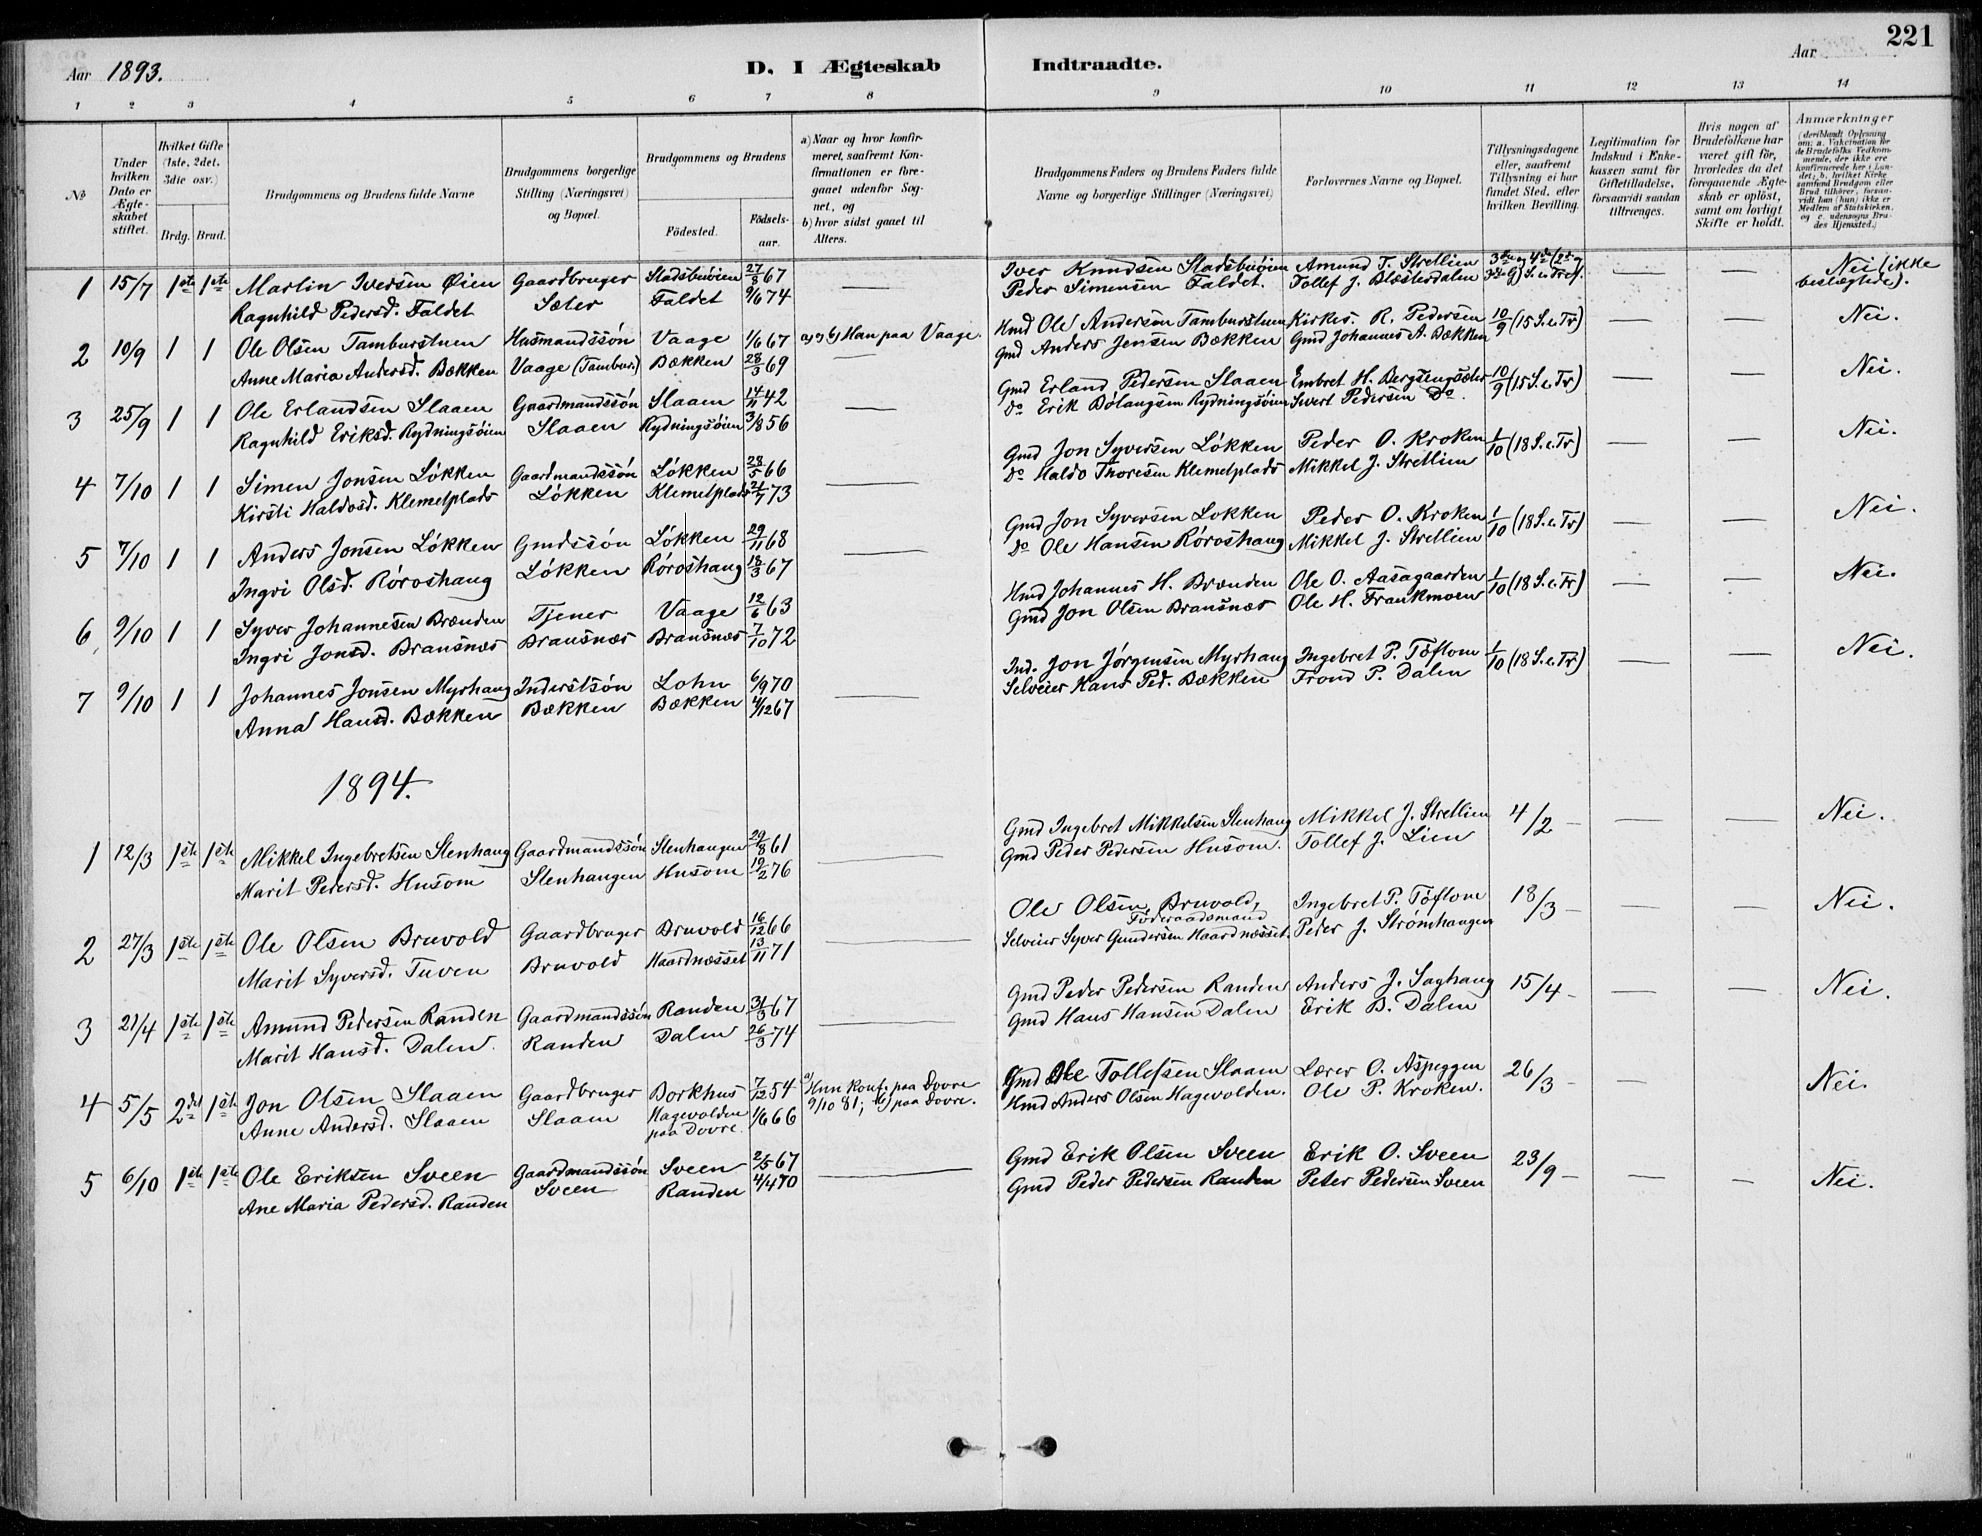 221
Aar 1893.
D. I Ægteskab
Indtraadte.
Aar
1 2 3 4 5 6 7 8
9 10 11 12 13 14
No
Under hvilken Dato er Ægteskabet stiftet.
Hvilket Gifte (1ste, 2det, 3die osv.)
Brdg. Brud.
Brudgommens og Brudens fulde Navne
Brudgommens borgerlige Stilling (Næringsvei) og Bopæl.
Brudgommens og Brudens
Fødested.
Fødselsaar.
a) Naar og hvor konfirmeret, saafremt Konfirmationen er foregaaet udenfor Sognet, og
b) hvor sidst gaaet til Alters.
Brudgommens Faders og Brudens Faders fulde Navne og borgerlige Stillinger (Næringsvei)
Forlovernes Navne og Bopæl.
Tillysningsdagene eller, saafremt Tillysning ei har fundet Sted, efter hvilken Bevilling.
Legitimation for Indskud i Enkekassen samt for Giftetilladelse, forsaavidt saadan tiltrænges.
Hvis nogen af Brudefolkene har været gift før, hvorledes da det foregaaende Ægteskab er opløst, samt om lovligt Skifte er holdt.
Anmærkninger
(deriblandt Oplysning om: a. Vakcination for de Brudefolks Vedkommende, der ikke ere konfirmerede her i Landet; b. hvilket Kirkesamfund Brudgom eller Brud tilhører, forsaavidt han (hun) ikke er Medlem af Statskirken, og c. udensogns Brudes Hjemsted.)
1 15/7 1ste 1ste Martin Iversen Øien Gaardbruger Stadsbuøien 27/8 67 — Iver Knudsen Stadsbuøien Amund T. Strellien — — Nei (ikke
Ragnhild Pedersd. Faldet Sæter Faldet 9/6 74 Peder Simensen Faldet. Tollef J. Blæsterdalen beslægtede).
2 10/9 1 1 Ole Olsen Tamburstuen Husmandssøn Vaage 1/6 67 a) og b) Han paa Vaage. Hmd Ole Andersen Tamburstuen Kirkes. R. Pedersen 10/9 (15 S. e. Tr) — — Nei.
Anne Maria Andersd. Bækken Vaage (Tambur.) Bækken 28/3 69 — Gmd Anders Jensen Bækken Gmd Johannes A. Bækken
3 25/9 1 1 Ole Erlandsen Slaaen Gaardmandssøn Slaaen 14/11 42 — Gmd Erland Pedersen Slaaen Embret H. Bergsengsæter 10/9 (15 S. e. Tr) — — Nei.
Ragnhild Eriksd. Rydningsøien Slaaen Rydningsøien 3/8 56 Do Erik Bølangsen Rydningsøien Sivert Pedersen Do
4 7/10 1 1 Simen Jonsen Løkken Gaardmandssøn Løkken 28/5 66 — Gmd Jon Syversen Løkken Peder O. Kroken 1/10 (18 S. e. Tr) — — Nei.
Kirsti Haldosd. Klemetplads Løkken Klemetplads 21/7 73 Do Haldo Thoresen Klemetplads Mikkel J. Strellien
5 7/10 1 1 Anders Jonsen Løkken Gmdssøn Løkken 29/11 68 — Gmd Jon Syversen Løkken Peder O. Kroken 1/10 (18 S. e. Tr) — — Nei.
Ingri Olsd. Røroshaug Løkken Røroshaug 18/3 67 Do Ole Hansen Røroshaug Mikkel J. Strellien
6 9/10 1 1 Syver Johannesen Brænden Tjener Vaage 12/6 63 Hmd Johannes H. Brænden Ole O. Aasagaarden 1/10 (18 S. e. Tr) — — Nei.
Ingri Jonsd. Bransnæs Bransnæs Bransnæs 7/10 72 Gmd Jon Olsen Bransnæs Ole H. Frankmoen
7 9/10 1 1 Johannes Jonsen Myrhaug Inderstsøn Lohn 6/9 70 — Ind. Jon Jørgensen Myrhaug Ingebret P. Tøftom 1/10 (18 S. e. Tr) — — Nei.
Anna Hansd. Bækken Bækken Bækken 4/12 67 Selveier Hans Ped. Bækken Trond P. Dalen
1894.
1 12/3 1ste 1ste Mikkel Ingebretsen Stenhaug Gaardmandssøn Stenhaugen 29/8 61 — Gmd Ingebret Mikkelsen Stenhaug Mikkel J. Strellien 4/2 — — — Nei.
Marit Pedersd. Husom Stenhaugen Husom 19/2 76 Gmd Peder Pedersen Husom. Tollef J. Lien
2 27/3 1ste 1ste Ole Olsen Bruvold Gaardbruger Bruvold 16/12 66 — Ole Olsen Bruvold, Føderaadsmand Ingebret P. Tøftom 18/3 — — — Nei.
Marit Syversd. Tuven Bruvold Haardnæsset 13/11 71 Selveier Syver Gundersen Haardnæsset. Peder J. Strømhaugen
3 21/4 1ste 1ste Amund Pedersen Randen Gaardmandssøn Randen 31/3 67 — Gmd Peder Pedersen Randen Anders J. Saghaug 15/4 — — — Nei.
Marit Hansd. Dalen. Randen Dalen 26/3 74 Gmd Hans Hansen Dalen Erik B. Dalen
4 5/5 2det 1ste Jon Olsen Slaaen Gaardbruger Borkhus 7/12 54 a) Hun konf. paa Dovre Gmd Ole Tollefsen Slaaen Lærer O. Aspeggen 26/3 — — — Nei.
Anne Andersd. Slaaen Slaaen Hagevolden paa Dovre. 1/6 66 9/10 81; b) paa Dovre. Hmd Anders Olsen Hagevolden. Ole P. Kroken.
5 6/10 1ste 1ste Ole Eriksen Sveen Gaardmandssøn Sveen 2/5 67 — Gmd Erik Olsen Sveen Erik O. Sveen 23/9 — — — Nei.
Ane Maria Pedersd. Randen Sveen Randen 4/4 70 Gmd Peder Pedersen Randen Peter Pedersen Sveen